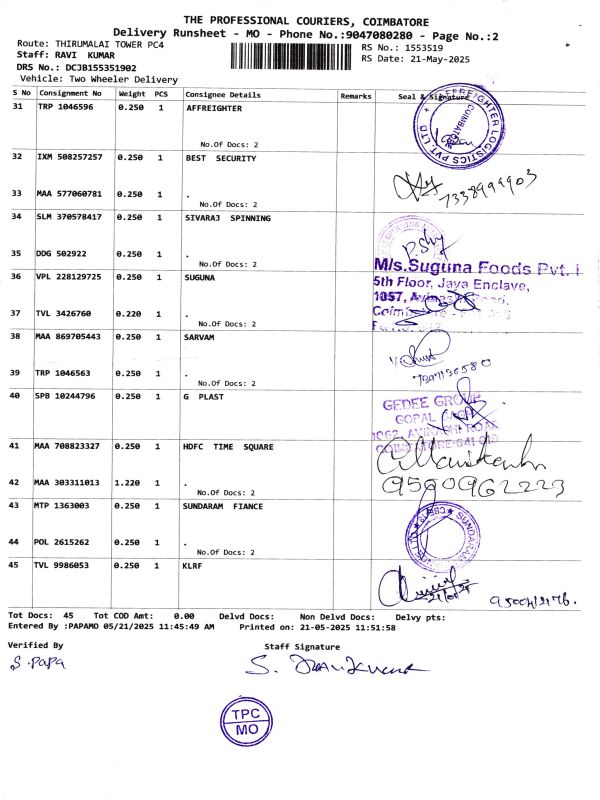 THE PROFESSIONAL COURIERS, COIMBATORE
Delivery Runsheet - MO - Phone No.:9047080280 - Page No.:2
Route: THIRUMALAI TOWER PC4
RS No.: 1553519
Staff: RAVI KUMAR
RS Date: 21-May-2025
DRS No.: DCJB155351902
Vehicle: Two Wheeler Delivery
S No Consignment No Weight PCS Consignee Details Remarks Seal & Signature
31 TRP 1046596 0.250 1 AFFREIGHTER
No.Of Docs: 2
32 IXM 508257257 0.250 1 BEST SECURITY
33 MAA 577060781 0.250 1 .
7338999903
No.Of Docs: 2
34 SLM 370578417 0.250 1 SIVARAJ SPINNING
35 DDG 502922 0.250 1 .
No.Of Docs: 2
M/s.Suguna Foods Pvt.
36 VPL 228129725 0.250 1 SUGUNA
5th Floor, Jaya Enclave,
1057,
37 TVL 3426760 0.220 1 .
No.Of Docs: 2
38 MAA 869705443 0.250 1 SARVAM
39 TRP 1046563 0.250 1 .
No.Of Docs: 2
40 SPB 10244796 0.250 1 G PLAST
GEDEE GROUP
GOPAL BAGH
1062, AVINASHI ROAD
COIMBATORE-641 018
41 MAA 708823327 0.250 1 HDFC TIME SQUARE
42 MAA 303311013 1.220 1 .
9500962223
No.Of Docs: 2
43 MTP 1363003 0.250 1 SUNDARAM FIANCE
SUNDARAM
44 POL 2615262 0.250 1 .
No.Of Docs: 2
45 TVL 9986053 0.250 1 KLRF
Tot Docs: 45 Tot COD Amt: 0.00 Delvd Docs: Non Delvd Docs: Delvy pts:
Entered By :PAPAMO 05/21/2025 11:45:49 AM Printed on: 21-05-2025 11:51:58
Verified By Staff Signature
S. PaPa
TPC
MO